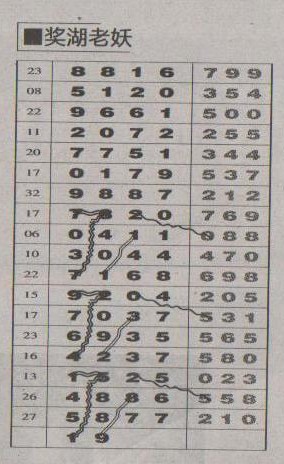 ■奖湖老妖
23 8 8 1 6 7 9 9
08 5 1 2 0 3 5 4
22 9 6 6 1 5 0 0
11 2 0 7 2 2 5 5
20 7 7 5 1 3 4 4
17 0 1 7 9 5 3 7
32 9 8 8 7 2 1 2
17 7 8 2 0 7 6 9
06 0 4 1 1 0 8 8
10 3 0 4 4 4 7 0
22 7 1 6 8 6 9 8
15 9 2 0 4 2 0 5
17 7 0 3 7 5 3 1
23 6 9 3 5 5 6 5
16 4 2 3 7 5 8 0
13 1 5 2 5 0 2 3
26 4 8 8 6 5 5 8
27 5 8 7 7 2 1 0
1 9